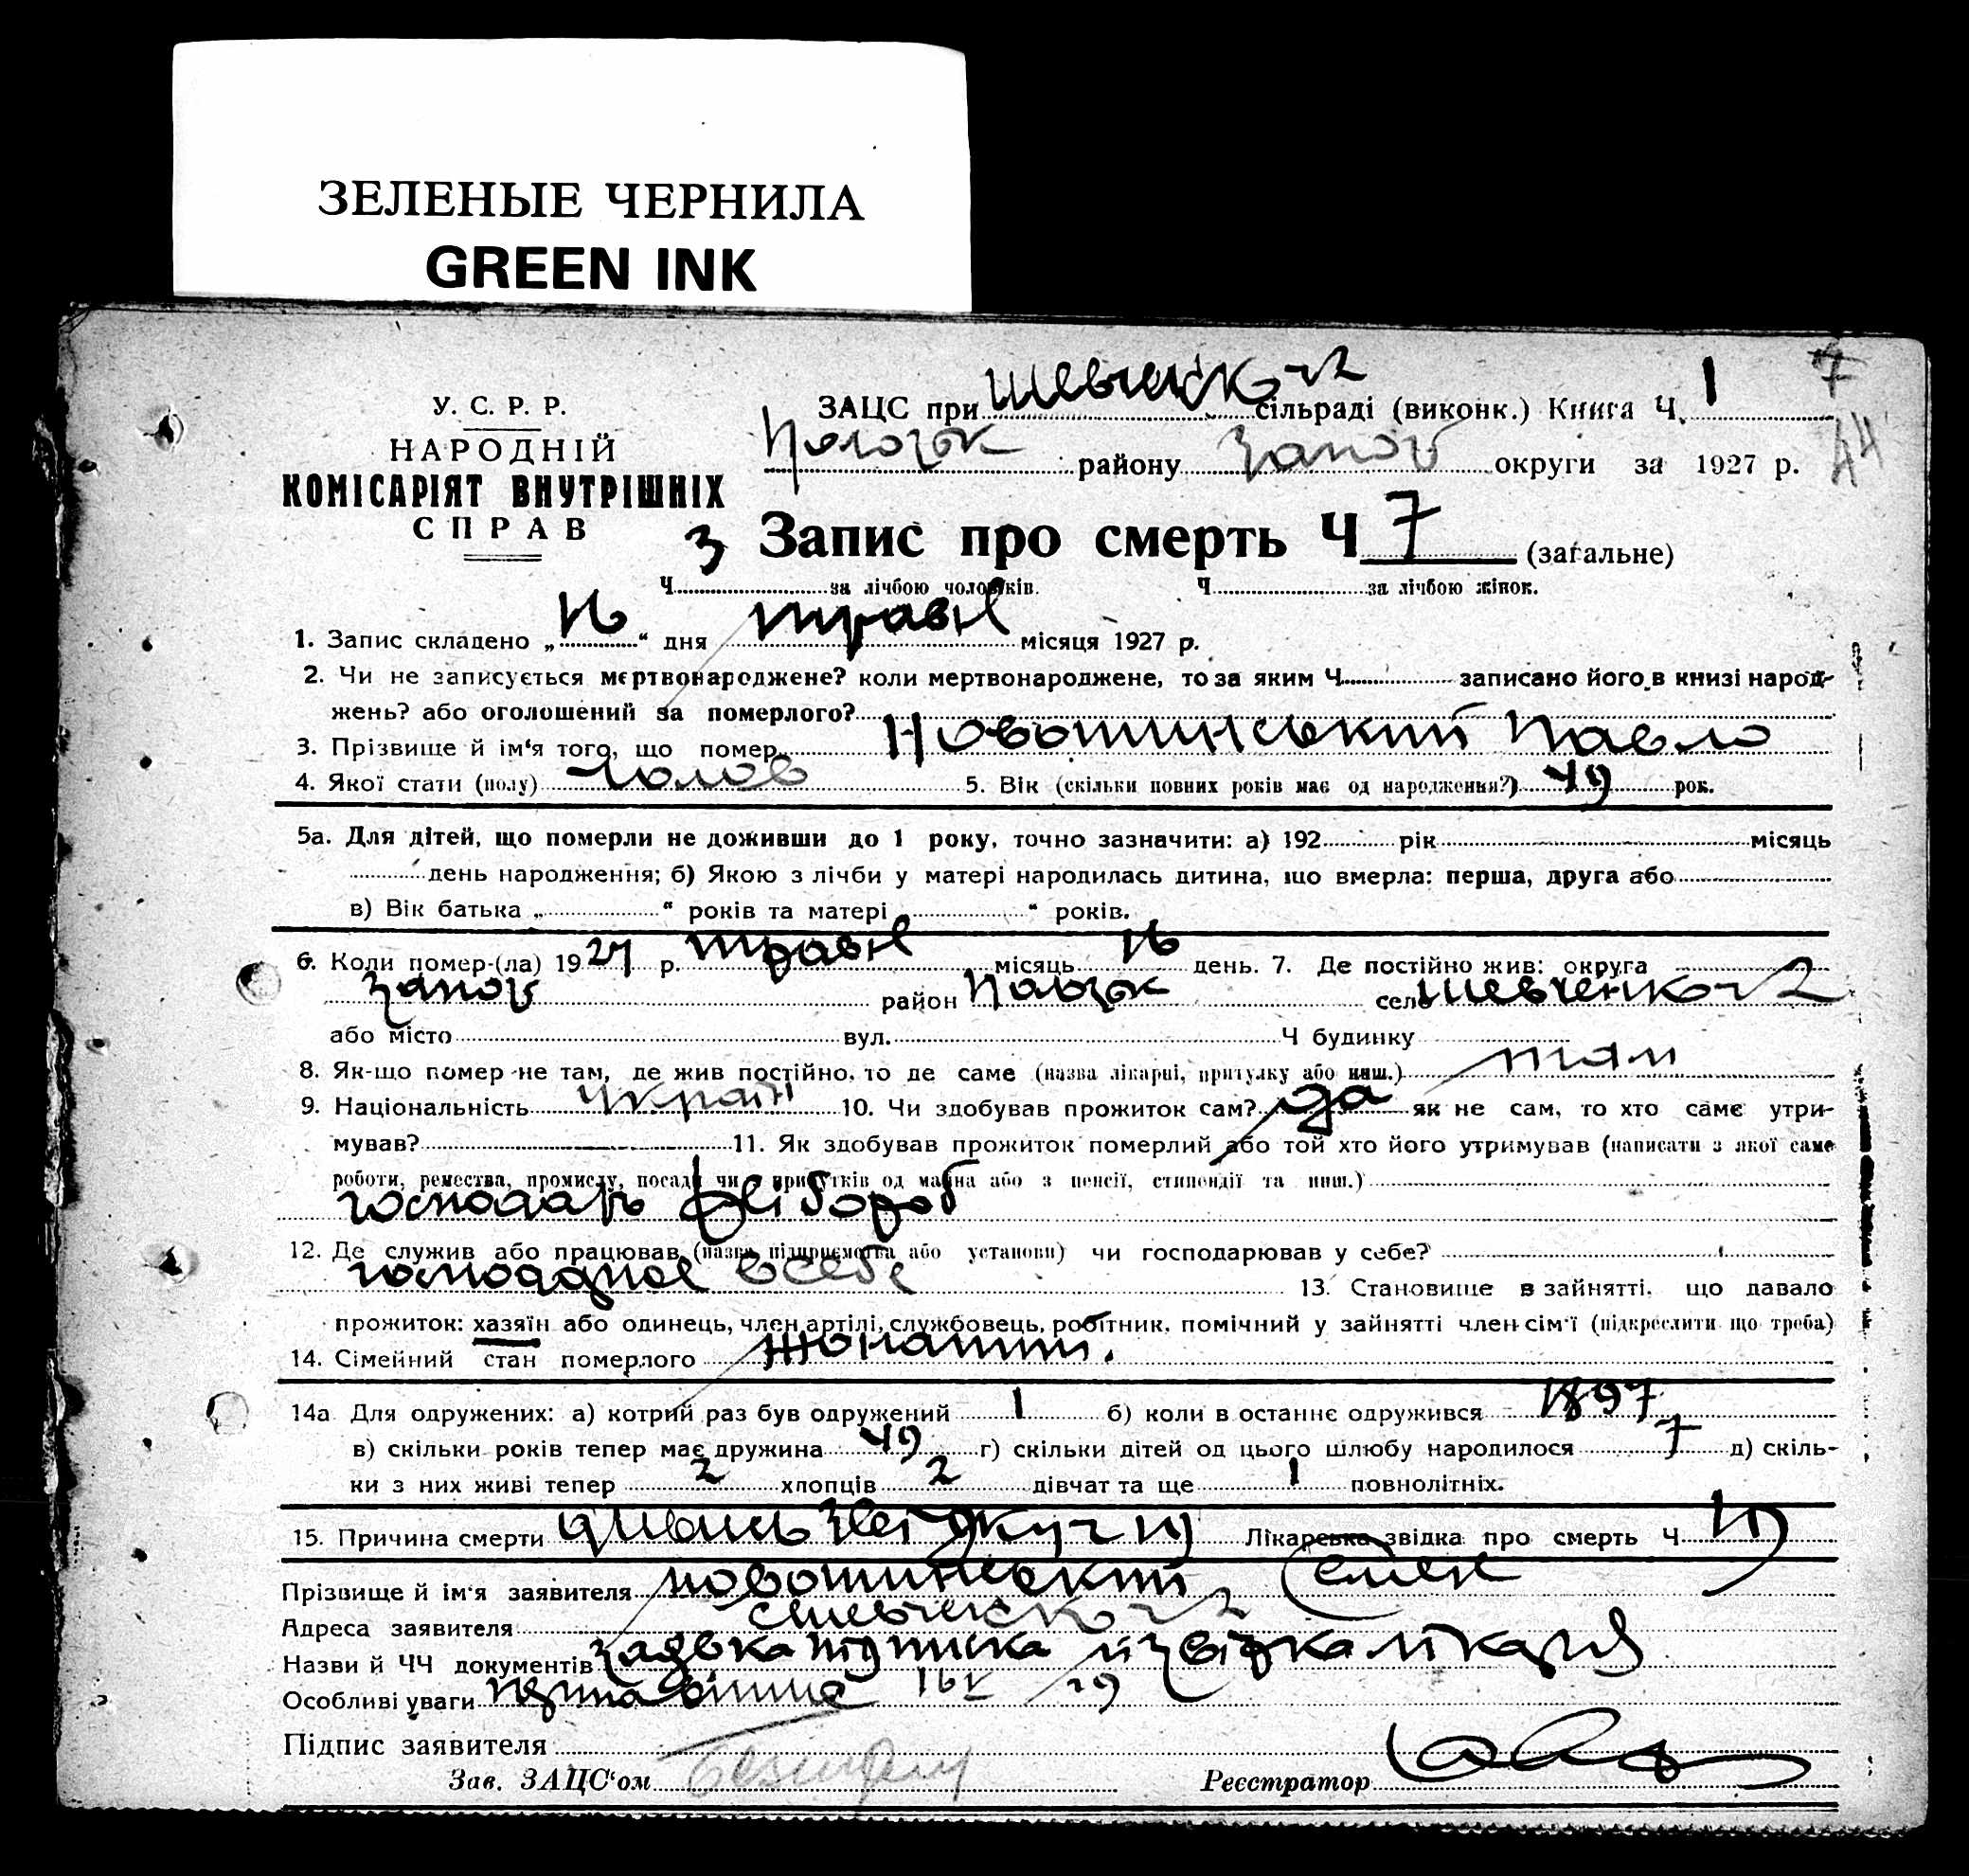 ЗЕЛЕНЫЕ ЧЕРНИЛА
GREEN INK
7
44
У. С. Р. Р.
НАРОДНІЙ
КОМІСАРІЯТ ВНУТРІШНІХ
СПРАВ
ЗАЦС при Шевченк № 2 сільраді (виконк.) Книга Ч. 1
Пологзьк району Запор округи за 1927 р.
З Запис про смерть Ч 7 (загальне)
Ч. за лічбою чоловіків. Ч. за лічбою жінок.
1. Запис складено „16“ дня травн місяця 1927 р.
2. Чи не записується мертвонароджене? коли мертвонароджене, то за яким Ч. записано його в книзі народ-
жень? або оголошений за померлого?
3. Прізвище й ім‘я того, що помер Новошинський Павло
4. Якої стати (полу) чолов 5. Вік (скільки повних років має од народження?) 49 рок.
5а. Для дітей, що померли не доживши до 1 року, точно зазначити: а) 192 рік місяць
день народження; б) Якою з лічби у матері народилась дитина, що вмерла: перша, друга або
в) Вік батька „ “ років та матері „ “ років.
6. Коли помер-(ла) 1927 р. травн місяць 16 день. 7. Де постійно жив: округа
Запор район село Шевченко № 2
або місто вул. Ч будинку
8. Як-що помер не там, де жив постійно, то де саме (назва лікарні, притулку або инш.) там
9. Національність україн 10. Чи здобував прожиток сам? да як не сам, то хто саме утри-
мував? 11. Як здобував прожиток померлий або той хто його утримував (написати з якої саме
роботи, ремества, промислу, посади чи прибутків од майна або з пенсії, стипендії та инш.)
господарь хлібороб
12. Де служив або працював (назва підприємства або установи) чи господарював у себе?
в себе 13. Становище в зайнятті, що давало
прожиток: хазяїн або одинець, член артілі, службовець, робітник, помічний у зайнятті член сім‘ї (підкреслити що треба)
14. Сімейний стан померлого жонатий.
14а Для одружених: а) котрий раз був одружений 1 б) коли в останнє одружився 1897
в) скільки років тепер має дружина 49 г) скільки дітей од цього шлюбу народилося 7 д) скіль-
ки з них живі тепер 2 хлопців 2 дівчат та ще 1 повнолітніх.
15. Причина смерти Лікарська звідка про смерть Ч
Прізвище й ім‘я заявителя Новошинський Семен
Адреса заявителя
Назви й ЧЧ документів підписка й звідка лікаря
Особливі уваги
Підпис заявителя
Зав. ЗАЦС‘ом Реєстратор